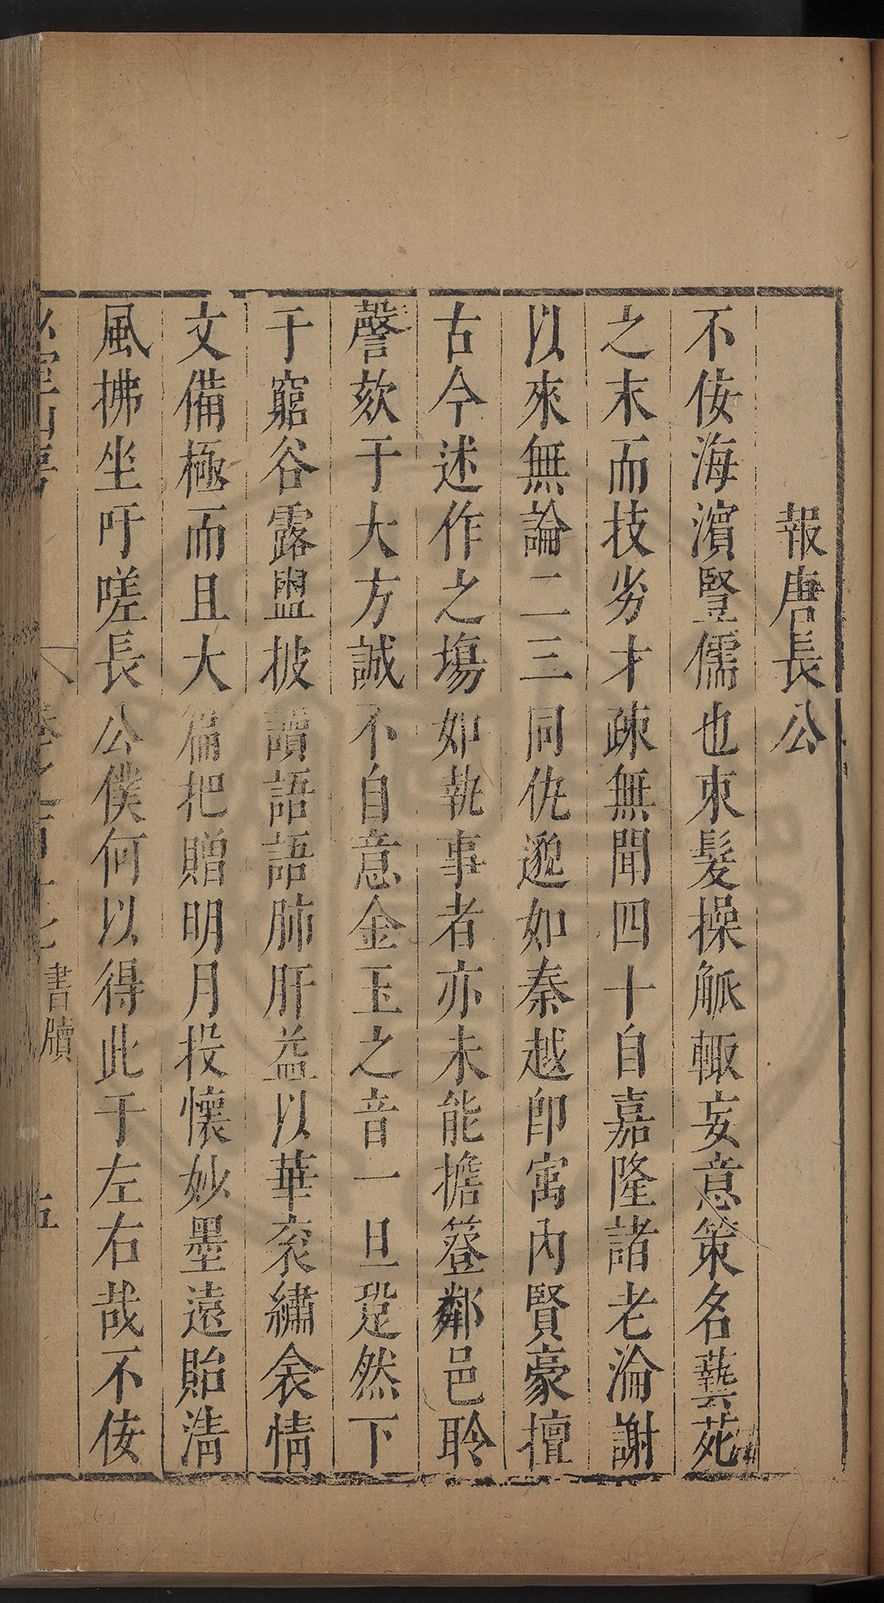 報唐長公
不佞海濵豎儒也束髮操觚輙妄意策名藝苑
之末而技劣才疎無聞四十自嘉隆諸老淪謝
以來無論二三同仇邈如秦越卽寓內賢豪擅
古今述作之塲如執事者亦未能擔簦鄰邑聆
謦欬于大方誠不自意金玉之音一旦跫然下
于窮谷露盥披讀語語肺肝益以華衮繡衾情
文備極而且大篇把贈明月投懷妙墨遠貽淸
風拂坐吁嗟長公僕何以得此于左右哉不佞
書牘 五